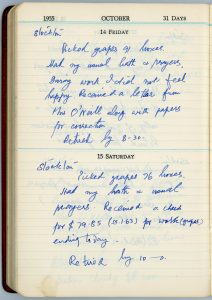 1955 OCTOBER 31 DAYS
14 FRIDAY
Stockton
Picked grapes 91 boxes.
Had my usual bath & prayers.
During work I did not feel
happy. Received a letter from
Mrs O'Neill along with papers
for correction.
Retired by 8-30.
15 SATURDAY
Stockton
Picked grapes 76 boxes.
Had my bath & usual
prayers. Received a check
for $79.85 for work (grapes)
ending today.
Retired by 10-0.